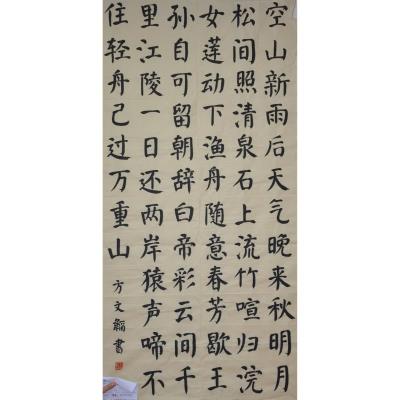 空山新雨后天气晚来秋明月
松间照清泉石上流竹喧归浣
女莲动下渔舟随意春芳歇王
孙自可留朝辞白帝彩云间千
里江陵一日还两岸猿声啼不
住轻舟已过万重山
方文書